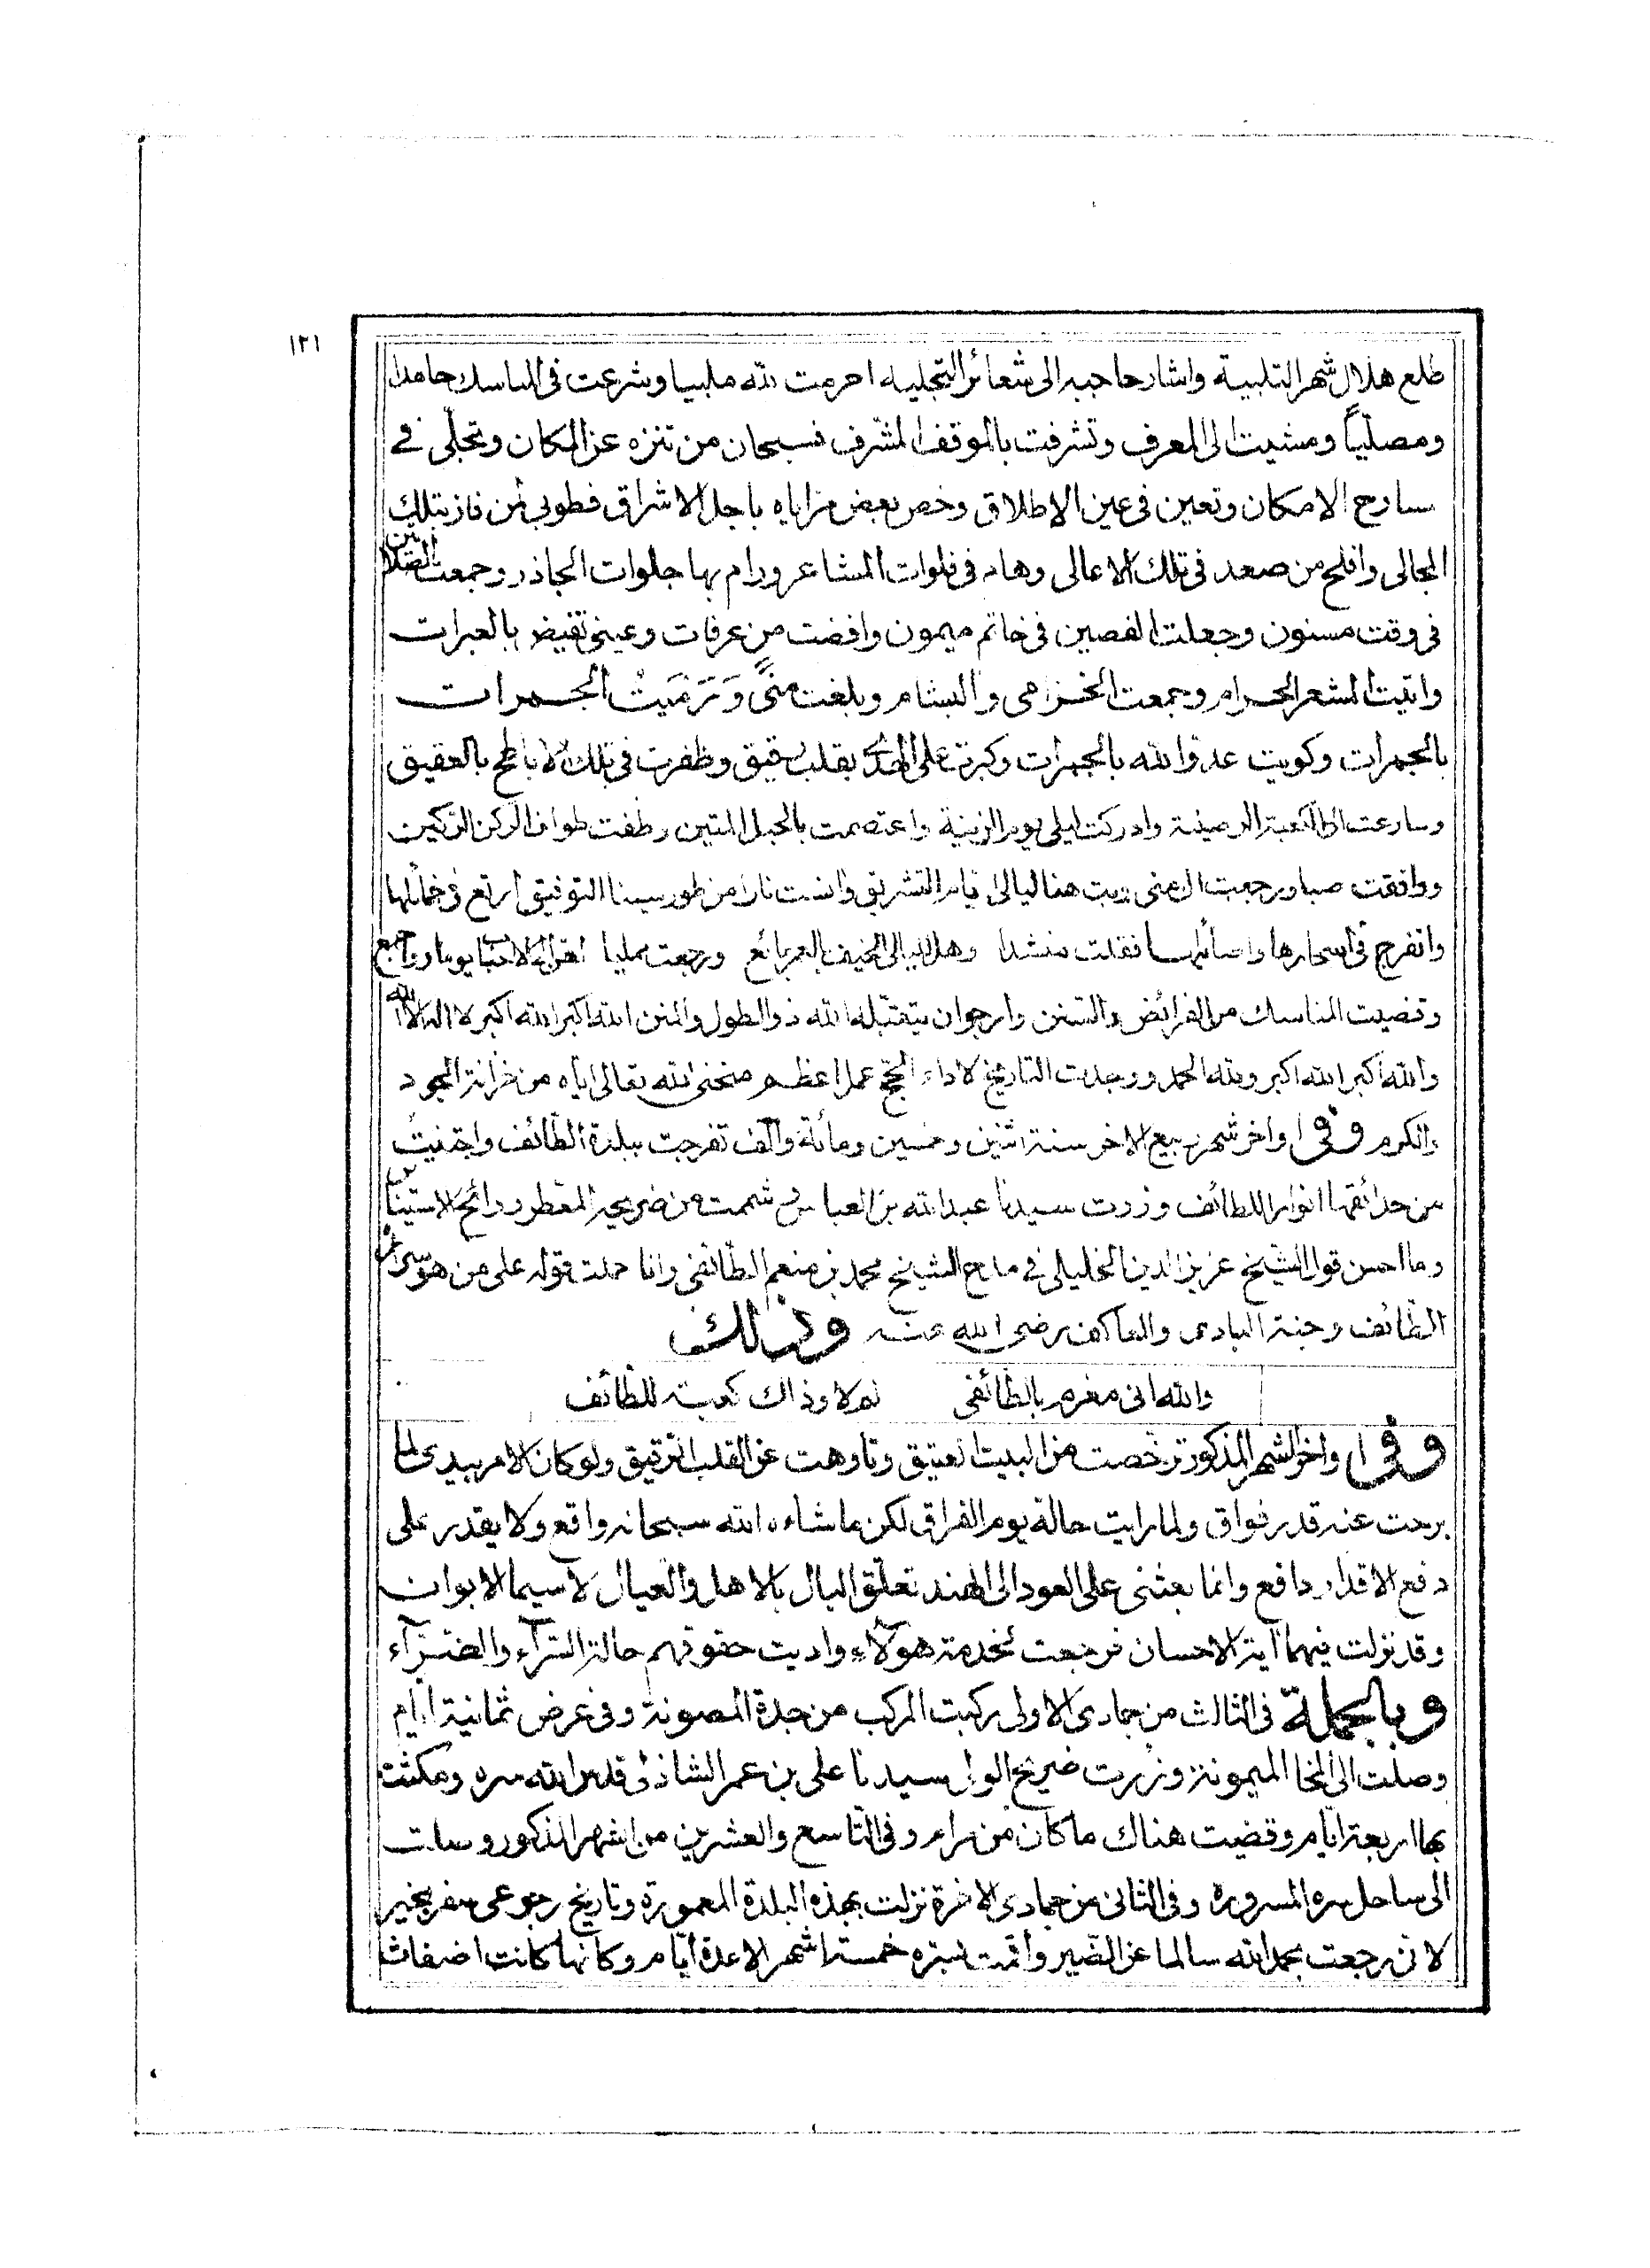 ١٢١
طلع هلال شهر التلبية واشار حاجبه الى شعائر التجلية احرمت لله ملبيا وشرعت في المناسك حامدا
ومصلّياً ومشيت الى المعرف وتشرفت بالموقف المشرف فسبحان من تنزه عن المكان وتجلّى في
مسارح الامكان وتعين في عين الاطلاق وخص بعض مزاياه باجل الاشراق فطوبى لمن فاز بتلك
المجالى وافلح من صعد في تلك الاعالى وهام في فلوات المشاعر ورام بها جلوات الجاذر وجمعت الصلاتين
في وقت مسنون وجعلت الفصين في خاتم ميمون وافضت من عرفات وعيني تفيض بالعبرات
واتيت المشعر الحرام وجمعت الخزامى والبشام وبلغت منًى وَرَمَيْتُ الجمرات
بالجمرات وكويت عدوّ الله بالجمرات وكبرت على الهدى بقلب رقيق وظفرت في تلك الاباطح بالعقيق
وسارعت الى الكعبة الرصينة وادركت ليلى يوم الزينة واعتصمت بالحبل المتين وطفت طواف الركن الركين
ووافقت صبا ورجعت الى منى وبت هنا ليالى ايام التشريق وآنست نارا من طور سينا التوفيق ارتع في خمائلها
واتفرج في اسحارها واصائلها فقلت منشدا وهل لليالى الخيف بالعمر بائع ورجعت ممليا
وقضيت المناسك من الفرائض والسنن وارجو ان يتقبله الله ذو الطول والمنن الله اكبر الله اكبر لا اله الا الله
والله اكبر الله اكبر ولله الحمد ووجدت التاريخ لاداء الحج عمل اعظم منحنى الله تعالى اياه من خزانة الجود
والكرم وفي اواخر شهر ربيع الاخر سنة اثنين وخمسين ومائة والف تفرجت ببلدة الطائف واجتنيتُ
من حدائقها انوار اللطائف وزرت سيدنا عبد الله بن العباس وشممت من ضريحه المعطر روائح الاستيناس
وما احسن قول الشيخ عزيز الدين الخليلي في مدح الشيخ محمد بن منعم الطائفى وانا حملت قوله على من هو سراج
الطائف وجنة البادى والعاكف رضى الله عنه وذلك
والله انى مغرم بالطائفى لم لا وذاك كعبة للطائف
وفي اواخر الشهر المذكور ترخصت من البيت العتيق وتاوهت عن القلب الرقيق ولو كان الامر بيدى لما
برحت عنه قدر فواق ولما رايت حالة يوم الفراق لكن ما شاءه الله سبحانه واقع ولا يقدر على
دفع الاقدار دافع وانما بعثنى على العود الى الهند تعلق البال بالاهل والعيال لا سيما الابوان
وقد نزلت فيهما آية الاحسان فرجعت لخدمة هؤلاء واديت حقوقهم حالة السرآء والضرآء
وبالجملة في الثالث من جمادى الاولى ركبت المركب من جدة المصونة وفي عرض ثمانية ايام
وصلت الى المخا الميمونة وزرت ضريح الولى سيدنا على بن عمر الشاذلى قدس الله سره ومكثت
بها اربعة ايام وقضيت هناك ما كان من مرام وفي التاسع والعشرين من الشهر المذكور وصلت
الى ساحل سره المسروره وفي الثانى من جمادى الاخرة نزلت بهذه البلدة المعمورة وتاريخ رجوعى سفر بخير
لانى رجعت بحمد الله سالما عن الضير وأقمت بسره خمسة اشهر الا عدة ايام وكانها كانت اضغاث